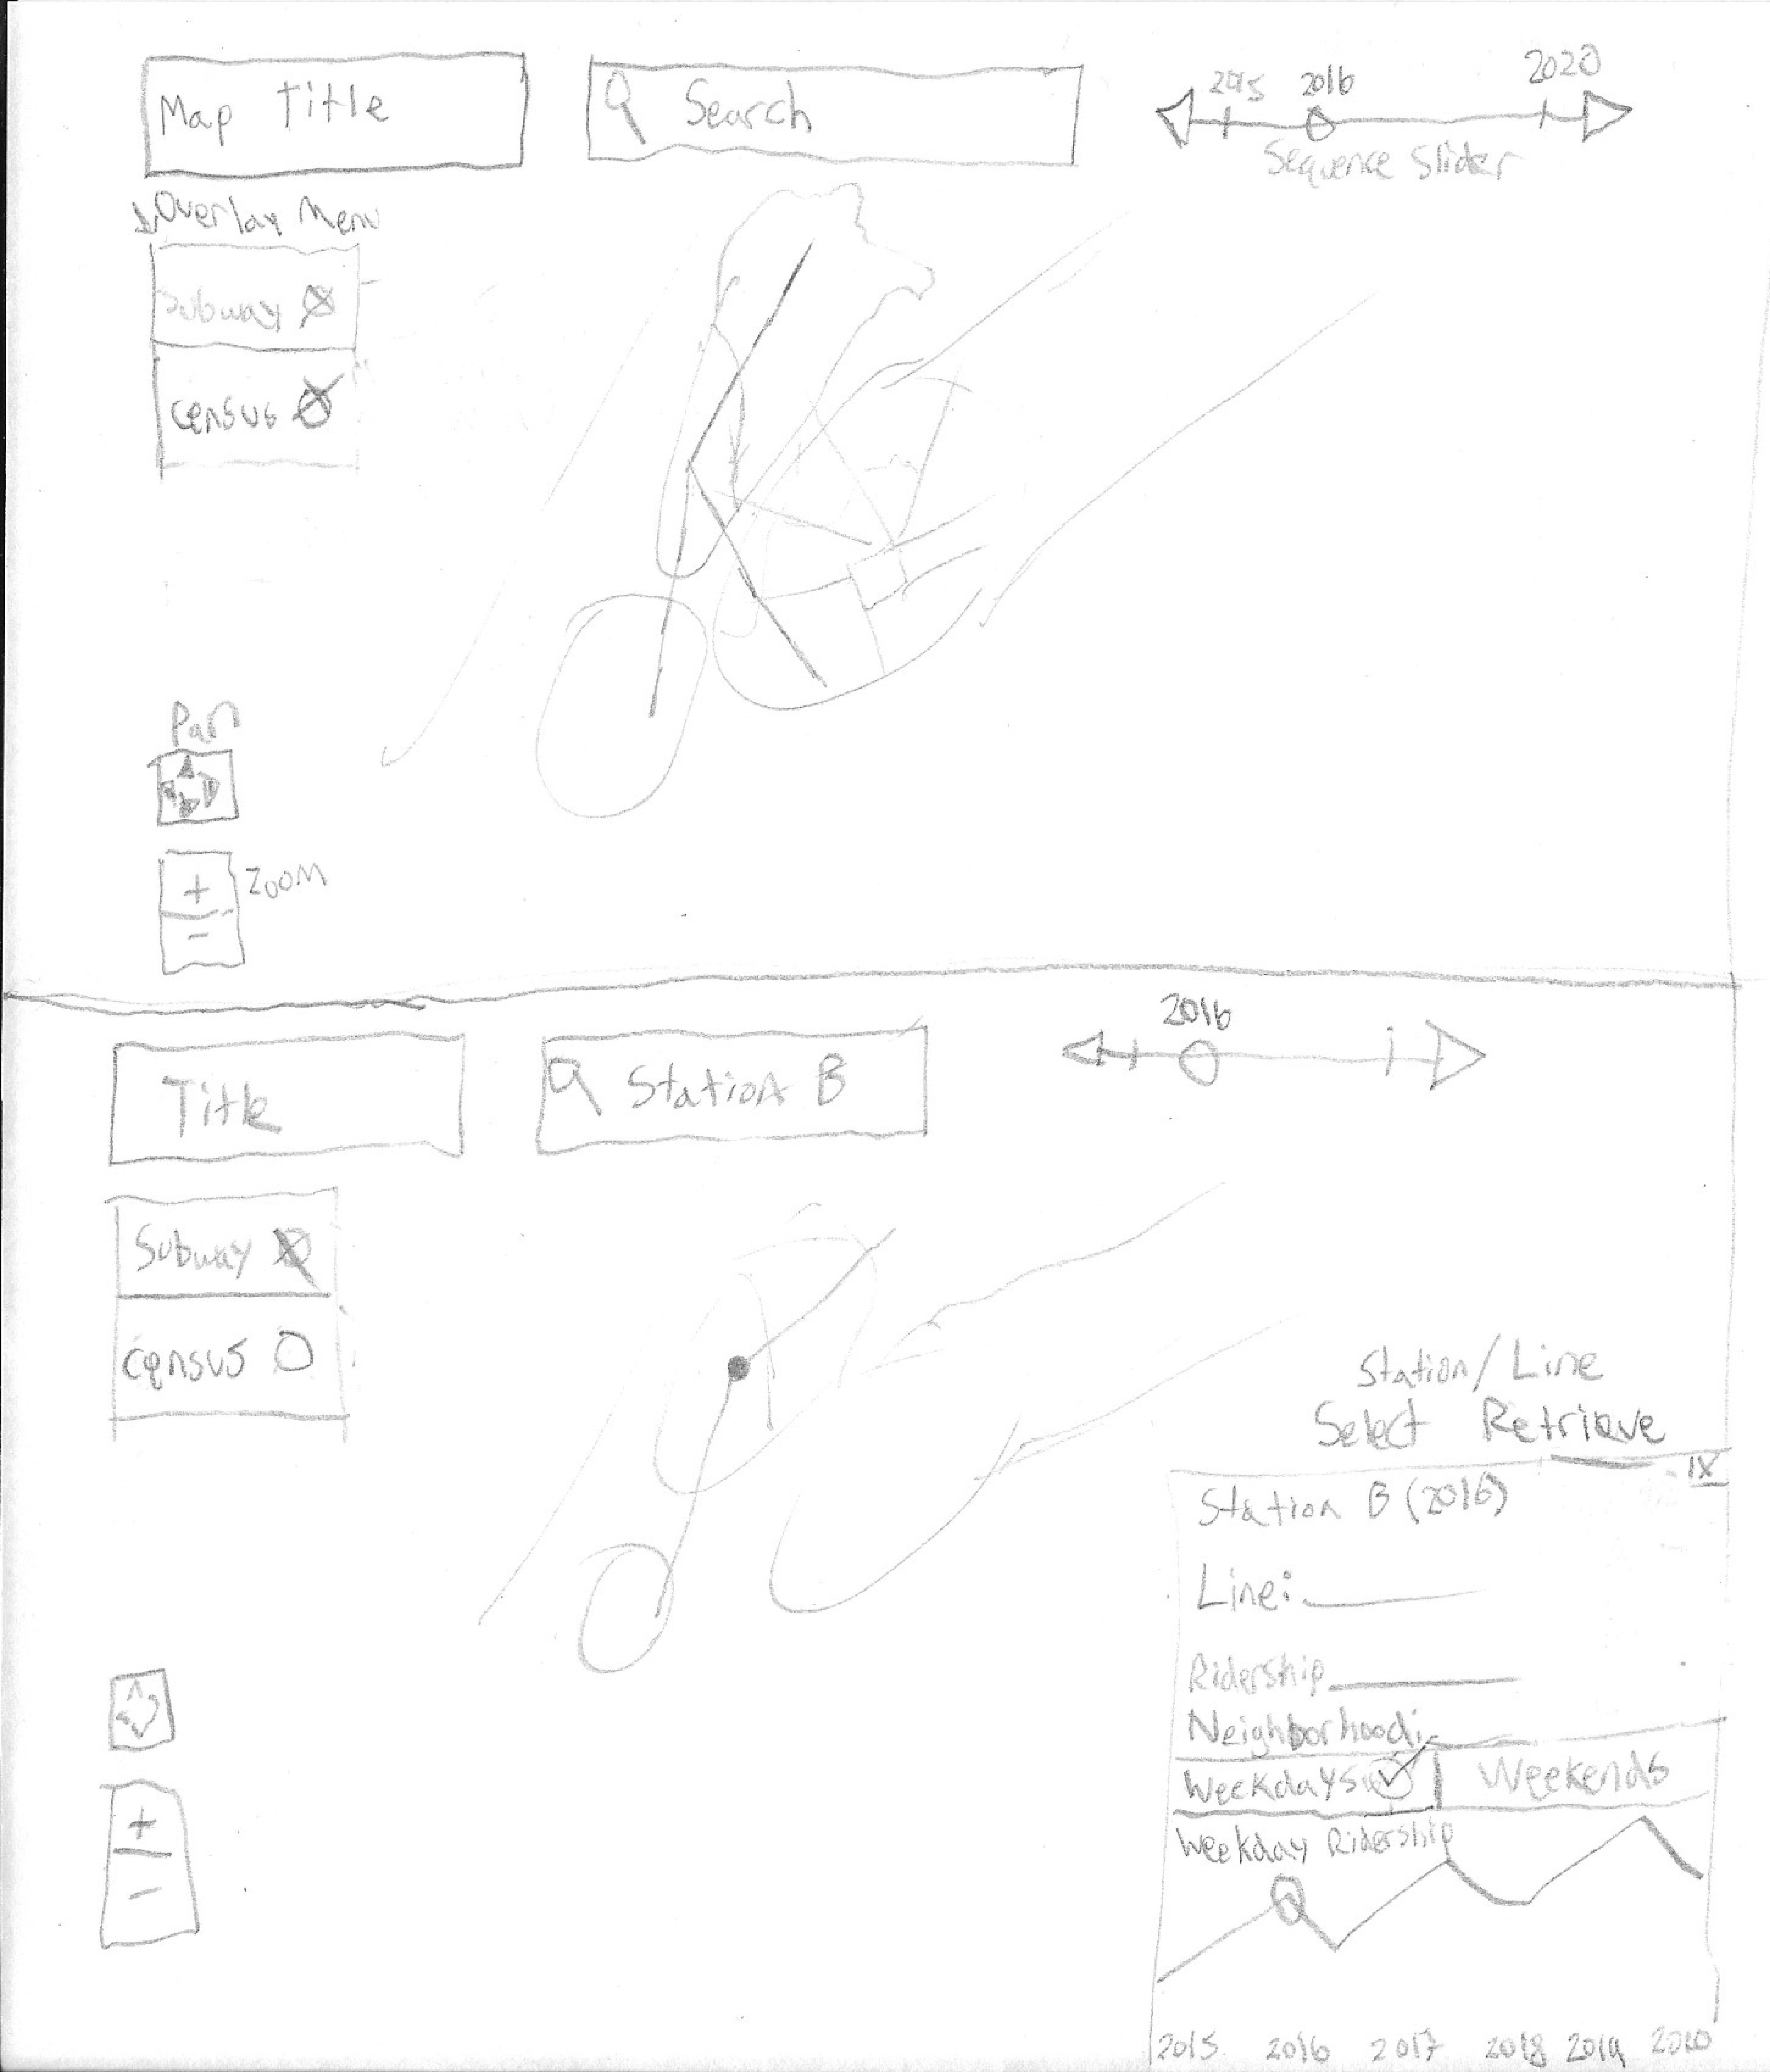 Map Title
Search
2015 2016 2020
Sequence Slider
Overlay Menu
Subway
Census
Pan
+ Zoom
-
2016
Title
Station B
Subway
Census
Station/Line
Select Retrieve
X
Station B (2016)
Line:
Ridership
Neighborhood:
Weekdays Weekends
Weekday Ridership
+
-
2015 2016 2017 2018 2019 2020